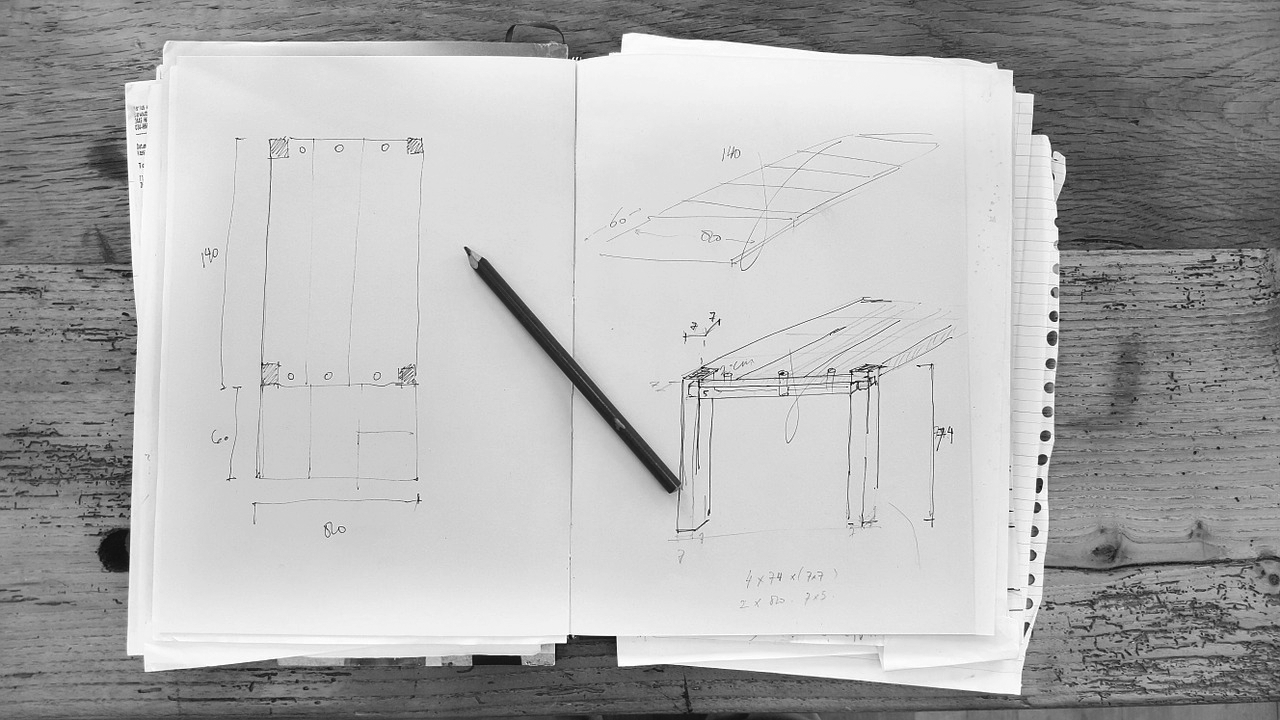 140
60
80
140
60
80
7 7
74
7 7
4 x 74 x (7x7)
2 x 80 . 7x5